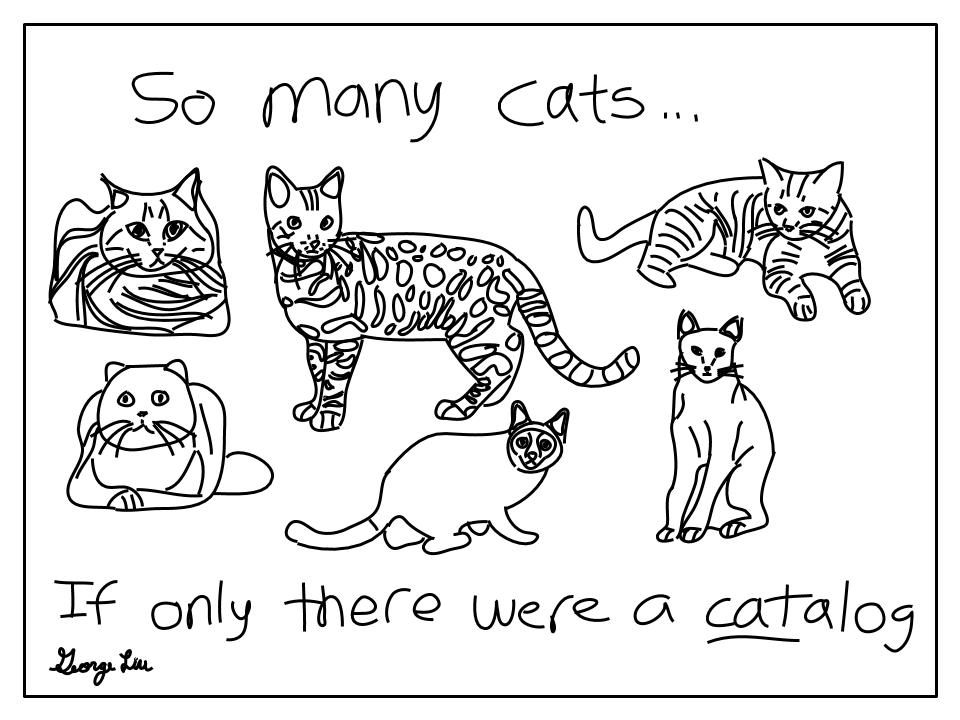 So many cats...
If only there were a catalog
George Liu